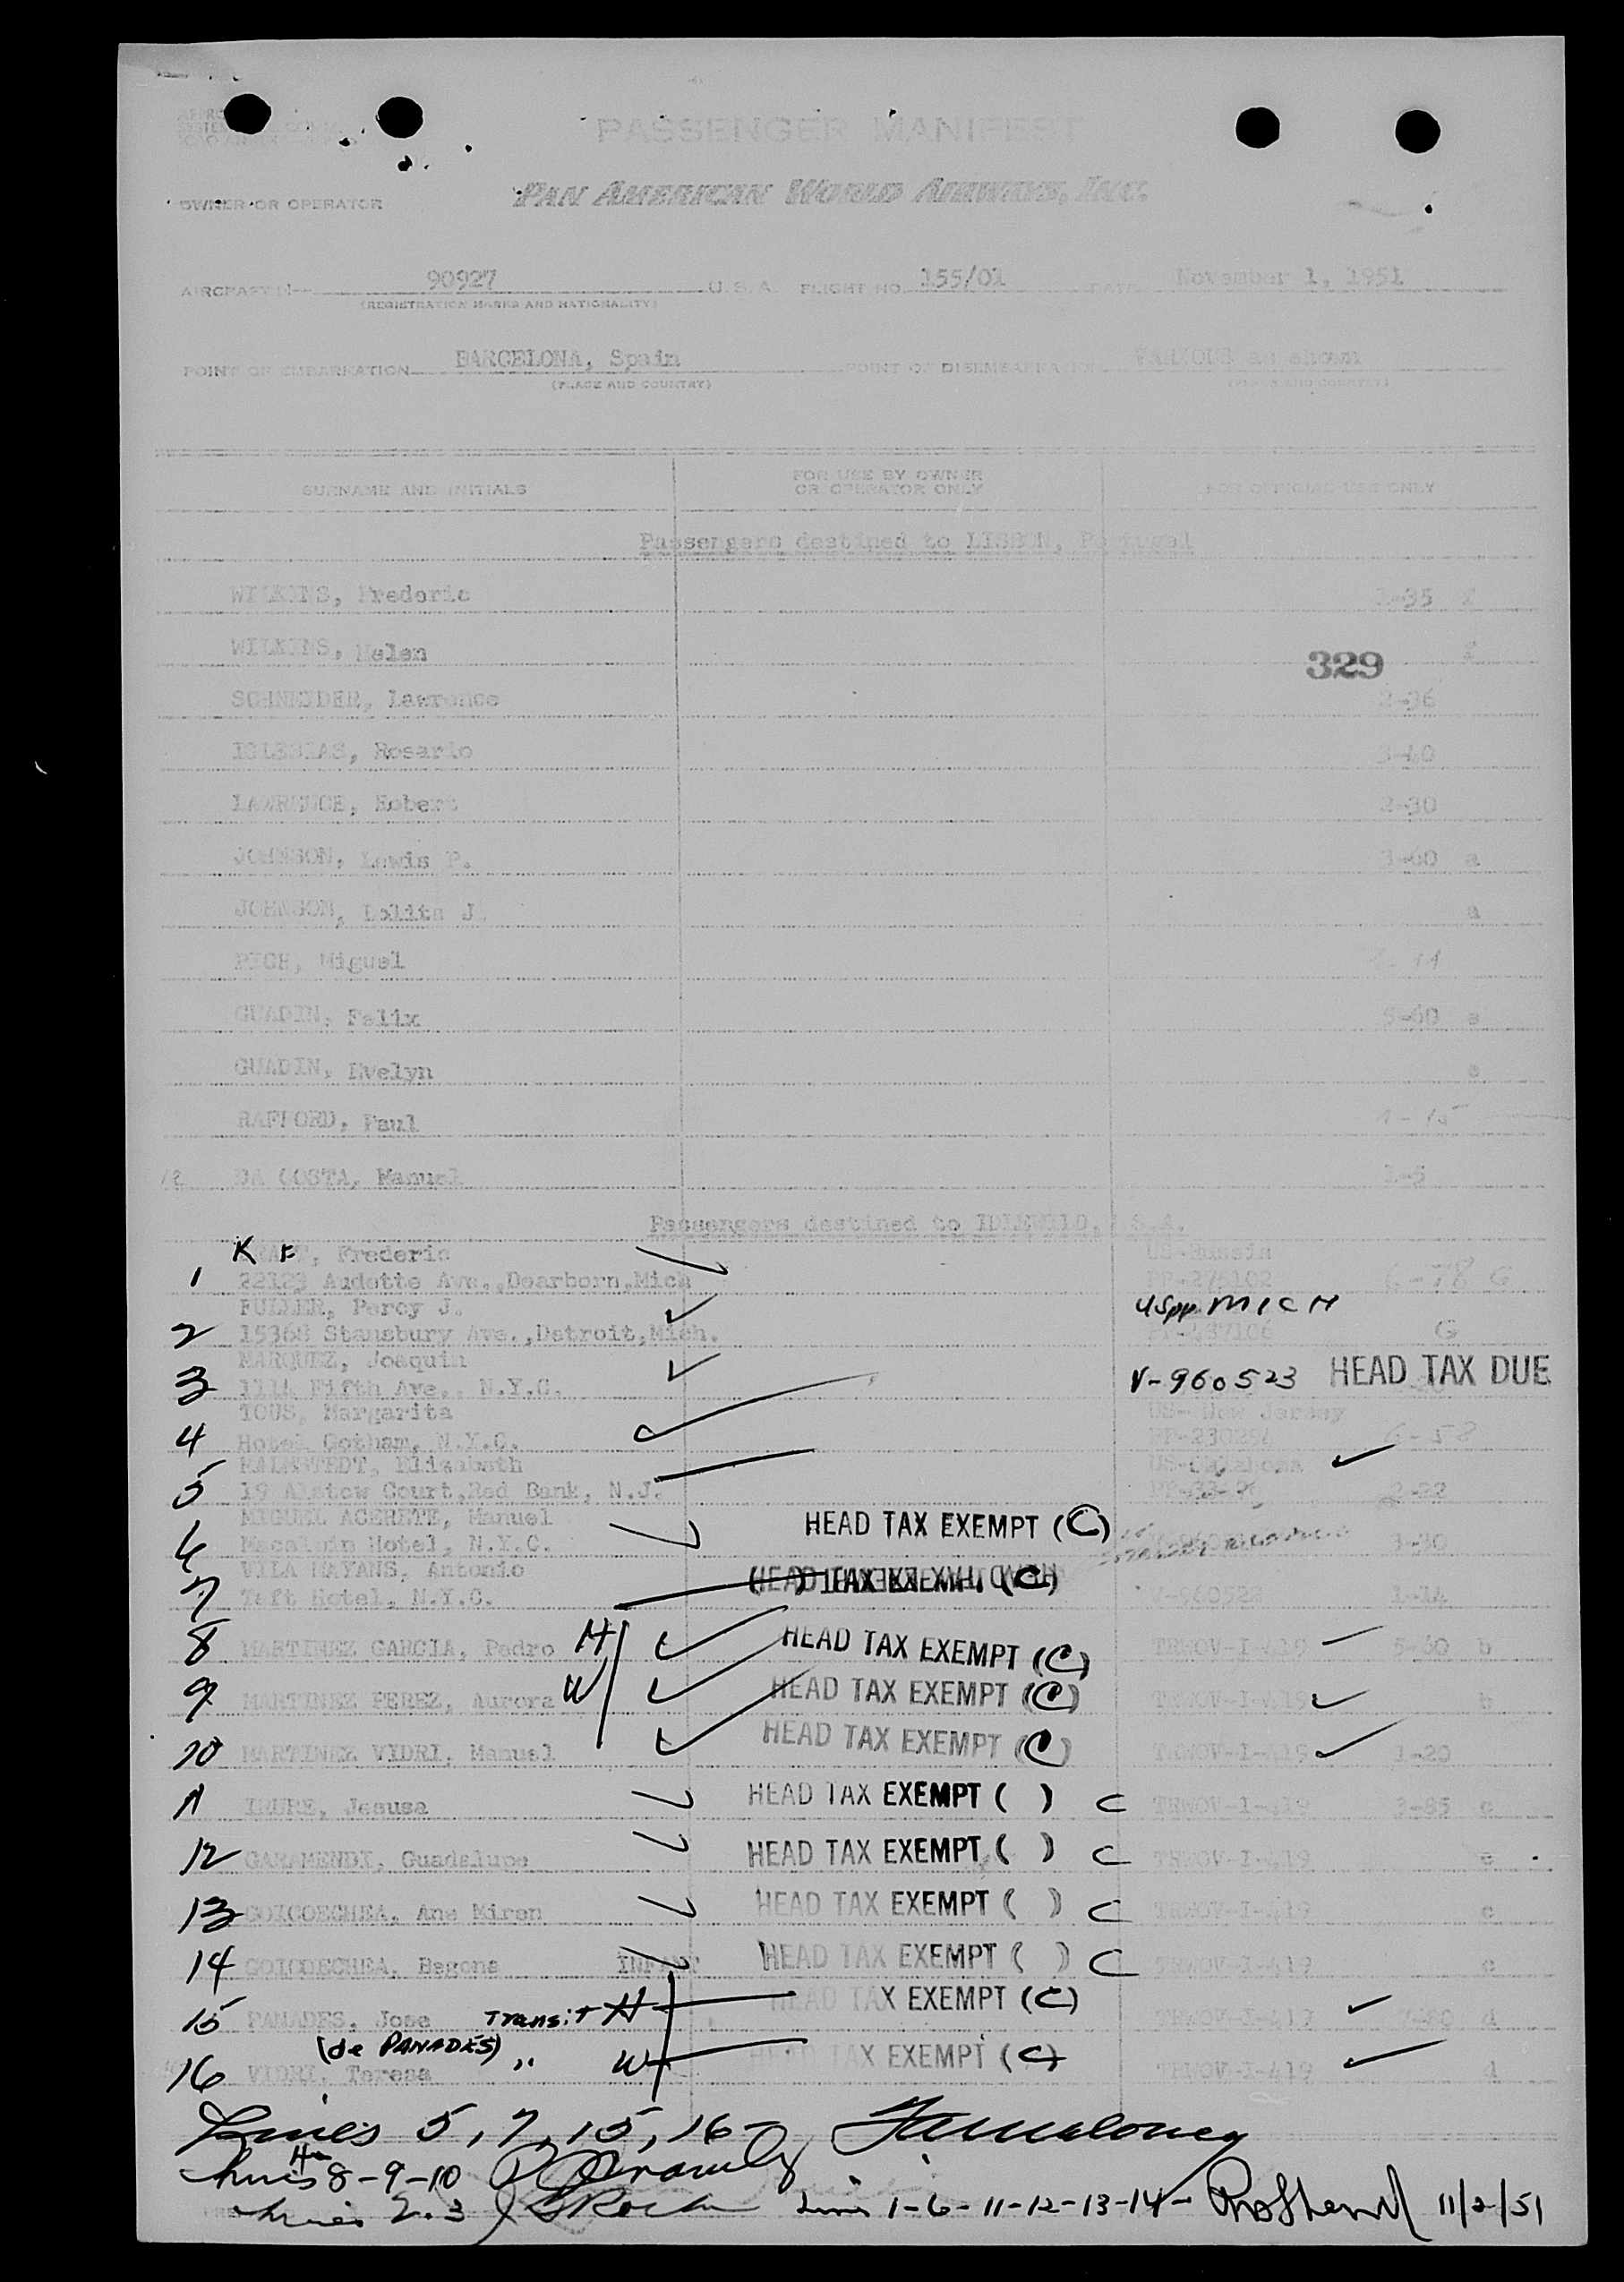 PASSENGER MANIFEST
OWNER OR OPERATOR PAN AMERICAN WORLD AIRWAYS, INC.
AIRCRAFT 90927 U.S.A. FLIGHT NO. 155/01 DATE November 1, 1951
(REGISTRATION MARKS AND NATIONALITY)
POINT OF EMBARKATION BARCELONA, Spain POINT OF DISEMBARKATION VARIOUS as shown
(PLACE AND COUNTRY) (PLACE AND COUNTRY)
SURNAME AND INITIALS FOR USE BY OWNER OR OPERATOR ONLY FOR OFFICIAL USE ONLY
Passengers destined to LISBON, Portugal
WILKINS, Frederic -35
WILKINS, Helen
329
SCHNEIDER, Lawrence 2-36
IGLESIAS, Rosario 3-40
LAWRENCE, Robert 2-30
JOHNSON, Lewis P. 3-60 a
JOHNSON, Lolita J. a
Miguel
GUADIN, Felix 5-60 e
GUADIN, Evelyn e
RAFFORD, Paul
12 DA COSTA, Manuel 1-5
Passengers destined to IDLEWILD, U.S.A.
K F
Frederic US-Russia
1 22123 Audette Ave., Dearborn, Mich PP-275102 G
FULLER, Percy J. USpp. MICH
2 15368 Stansbury Ave., Detroit, Mich. G
MARQUEZ, Joaquin
3 1114 Fifth Ave., N.Y.C. V-960523 HEAD TAX DUE
TOUS, Margarita US- New Jersey
4 Hotel Gotham, N.Y.C.
Elisabeth US-Oklahoma
5 19 Alstow Court, Red Bank, N.J. 2-22
MIGUEL ACERETE, Manuel HEAD TAX EXEMPT (C)
6 Hotel, N.Y.C. 3-30
VILA MAYANS, Antonio
7 Taft Hotel, N.Y.C. V-960522 1-14
8 MARTINEZ GARCIA, Pedro H HEAD TAX EXEMPT (C) TRWOV-I-419 5-60 b
9 MARTINEZ PEREZ, Aurora W HEAD TAX EXEMPT (C) TRWOV-I-419 b
10 MARTINEZ VIDRI, Manuel HEAD TAX EXEMPT (C) TRWOV-I-419 1-20
11 IRURE, Jesusa HEAD TAX EXEMPT ( ) C TRWOV-I-419 3-85 c
12 GARAMENDI, Guadalupe HEAD TAX EXEMPT ( ) C TRWOV-I-419 c
13 GOICOECHEA, Ana Miren HEAD TAX EXEMPT ( ) C TRWOV-I-419 c
14 GOICOECHEA, Begona INFANT HEAD TAX EXEMPT ( ) C TRWOV-I-419 c
15 PANADES, Jose Transit H HEAD TAX EXEMPT (C) TRWOV-I-419 d
(de PANADES)
16 VIDRI, Teresa " W HEAD TAX EXEMPT (C) TRWOV-I-419 d
Lines 5, 7, 15, 16-
Lines 8-9-10
Lines 2.3 Lines 1-6-11-12-13-14- 11/2/51